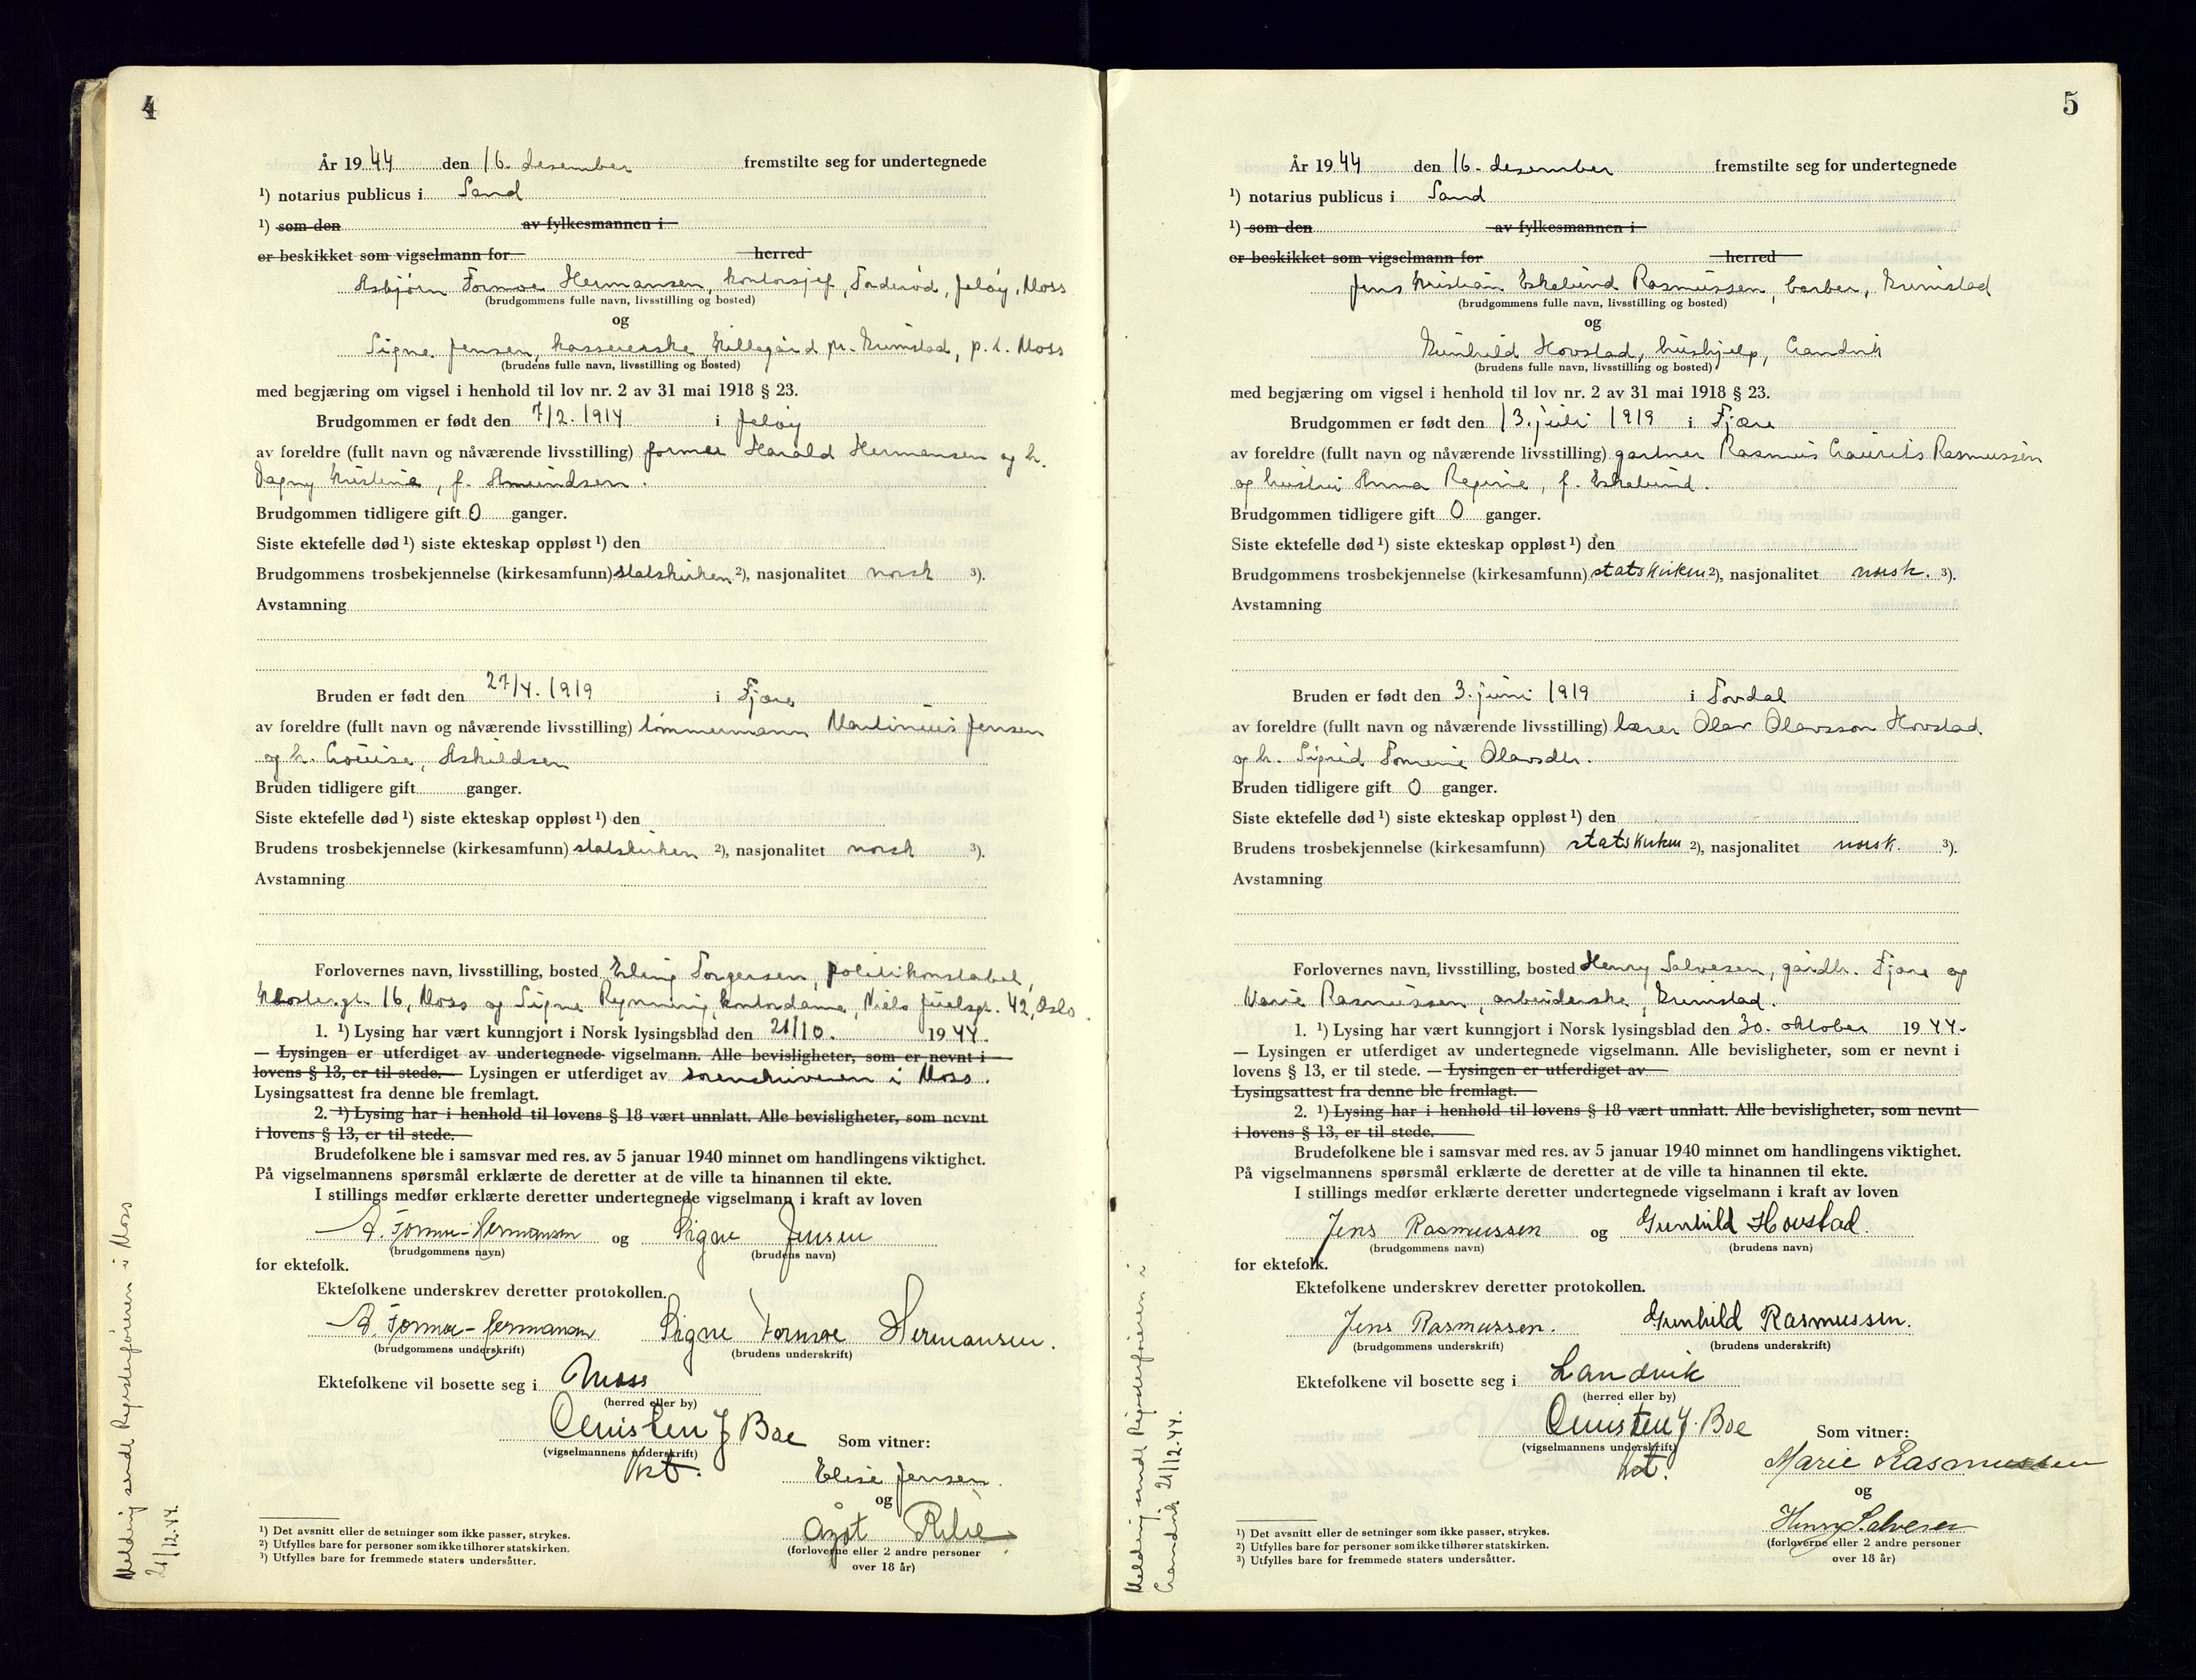 4
År 1944 den 16. desember fremstilte seg for undertegnede
¹) notarius publicus i Sand
¹) som den av fylkesmannen i
er beskikket som vigselmann for herred
Asbjørn Formoe Hermansen, kontorsjef, Torderød, Jeløy, Moss
(brudgommens fulle navn, livsstilling og bosted)
og
Signe Jensen, kassererske, pr. Grimstad, p.t. Moss
(brudens fulle navn, livsstilling og bosted)
med begjæring om vigsel i henhold til lov nr. 2 av 31 mai 1918 § 23.
Brudgommen er født den 7/2. 1914 i Jeløy
av foreldre (fullt navn og nåværende livsstilling) former Harald Hermansen og h.
Dagny Kristine, f. Amundsen.
Brudgommen tidligere gift 0 ganger.
Siste ektefelle død ¹) siste ekteskap oppløst ¹) den
Brudgommens trosbekjennelse (kirkesamfunn) statskirken ²), nasjonalitet norsk ³).
Avstamning
Bruden er født den 27/4. 1919 i Fjære
av foreldre (fullt navn og nåværende livsstilling) tømmermann Martinius Jensen
og h. Louise, Askildsen
Bruden tidligere gift ganger.
Siste ektefelle død ¹) siste ekteskap oppløst ¹) den
Brudens trosbekjennelse (kirkesamfunn) statskirken ²), nasjonalitet norsk ³).
Avstamning
Forlovernes navn, livsstilling, bosted Erling Torgersen, politikonstabel,
Klostergt. 16, Moss og Signe Rynning, kontordame, Niels Juelsgt. 42, Oslo.
1. ¹) Lysing har vært kunngjort i Norsk lysingsblad den 21/10. 1944.
— Lysingen er utferdiget av undertegnede vigselmann. Alle bevisligheter, som er nevnt i
lovens § 13, er til stede. — Lysingen er utferdiget av sorenskriveren i Moss.
Lysingsattest fra denne ble fremlagt.
2. ¹) Lysing har i henhold til lovens § 18 vært unnlatt. Alle bevisligheter, som nevnt
i lovens § 13, er til stede.
Brudefolkene ble i samsvar med res. av 5 januar 1940 minnet om handlingens viktighet.
På vigselmannens spørsmål erklærte de deretter at de ville ta hinannen til ekte.
I stillings medfør erklærte deretter undertegnede vigselmann i kraft av loven
A. Formoe-Hermansen og Signe Jensen
(brudgommens navn) (brudens navn)
for ektefolk.
Ektefolkene underskrev deretter protokollen.
A. Formoe-Hermansen Signe Formoe Hermansen.
(brudgommens underskrift) (brudens underskrift)
Ektefolkene vil bosette seg i Moss
(herred eller by)
Christen J Boe Som vitner:
(vigselmannens underskrift)
Elise Jensen.
og
(forloverne eller 2 andre personer
over 18 år)
¹) Det avsnitt eller de setninger som ikke passer, strykes.
²) Utfylles bare for personer som ikke tilhører statskirken.
³) Utfylles bare for fremmede staters undersåtter.
Melding sendt Registerføreren i Moss
21/12.44.
5
År 1944 den 16. desember fremstilte seg for undertegnede
¹) notarius publicus i Sand
¹) som den av fylkesmannen i
er beskikket som vigselmann for herred
Jens Kristian Eskelund Rasmussen, barber, Grimstad
(brudgommens fulle navn, livsstilling og bosted)
og
Gunhild Hovstad, hushjelp, Landvik
(brudens fulle navn, livsstilling og bosted)
med begjæring om vigsel i henhold til lov nr. 2 av 31 mai 1918 § 23.
Brudgommen er født den 13. juli 1919 i Fjære
av foreldre (fullt navn og nåværende livsstilling) gartner Rasmus Laurits Rasmussen
og hustru Anna Regine, f. Eskelund.
Brudgommen tidligere gift 0 ganger.
Siste ektefelle død ¹) siste ekteskap oppløst ¹) den
Brudgommens trosbekjennelse (kirkesamfunn) statskirken ²), nasjonalitet norsk. ³).
Avstamning
Bruden er født den 3. juni 1919 i Tovdal
av foreldre (fullt navn og nåværende livsstilling) lærer Olav Olavsson Hovstad
og h. Sigrid Tomine Olavsdtr.
Bruden tidligere gift 0 ganger.
Siste ektefelle død ¹) siste ekteskap oppløst ¹) den
Brudens trosbekjennelse (kirkesamfunn) statskirken ²), nasjonalitet norsk. ³).
Avstamning
Forlovernes navn, livsstilling, bosted Henry Salvesen, gårdbr. Fjære og
Marie Rasmussen, arbeiderske, Grimstad.
1. ¹) Lysing har vært kunngjort i Norsk lysingsblad den 30. oktober 1944.
— Lysingen er utferdiget av undertegnede vigselmann. Alle bevisligheter, som er nevnt i
lovens § 13, er til stede. — Lysingen er utferdiget av
Lysingsattest fra denne ble fremlagt.
2. ¹) Lysing har i henhold til lovens § 18 vært unnlatt. Alle bevisligheter, som nevnt
i lovens § 13, er til stede.
Brudefolkene ble i samsvar med res. av 5 januar 1940 minnet om handlingens viktighet.
På vigselmannens spørsmål erklærte de deretter at de ville ta hinannen til ekte.
I stillings medfør erklærte deretter undertegnede vigselmann i kraft av loven
Jens Rasmussen og Gunhild Hovstad.
(brudgommens navn) (brudens navn)
for ektefolk.
Ektefolkene underskrev deretter protokollen.
Jens Rasmussen. Gunhild Rasmussen.
(brudgommens underskrift) (brudens underskrift)
Ektefolkene vil bosette seg i Landvik
(herred eller by)
Christen J. Boe Som vitner:
(vigselmannens underskrift)
Marie Rasmussen
og
Henry Salvesen
(forloverne eller 2 andre personer
over 18 år)
¹) Det avsnitt eller de setninger som ikke passer, strykes.
²) Utfylles bare for personer som ikke tilhører statskirken.
³) Utfylles bare for fremmede staters undersåtter.
Melding sendt Registerføreren i
Landvik 21/12.44.